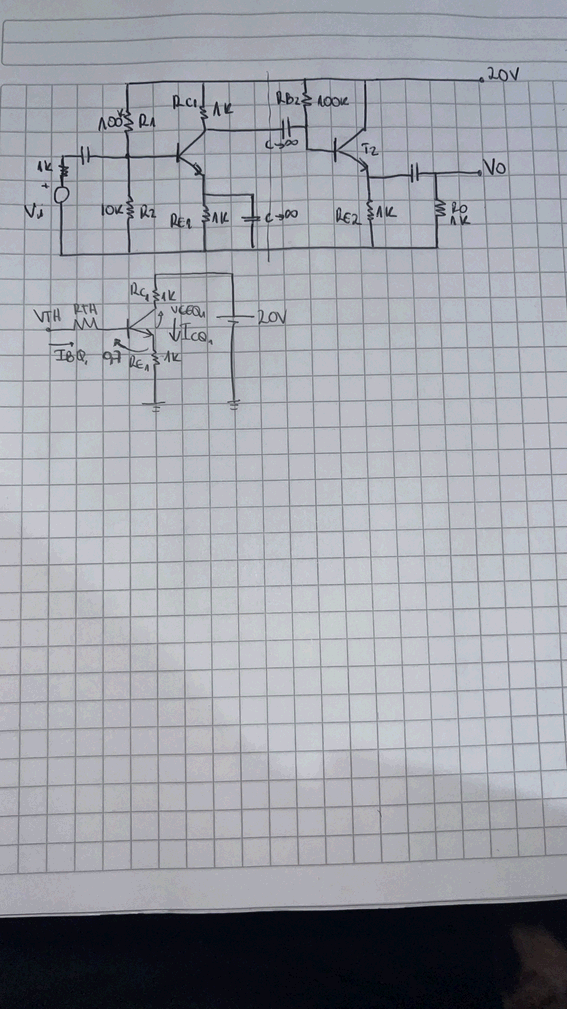 20V
RC1 1K
RB2 100K
100K R1
C→∞
T2
1K
+
Vi
VO
10K R2
RE1 1K
C→∞
RE2 1K
RO 1K
RC1 1K
VTH RTH
VCEQ1
ICQ1
20V
IBQ1
0,7
RE1 1K